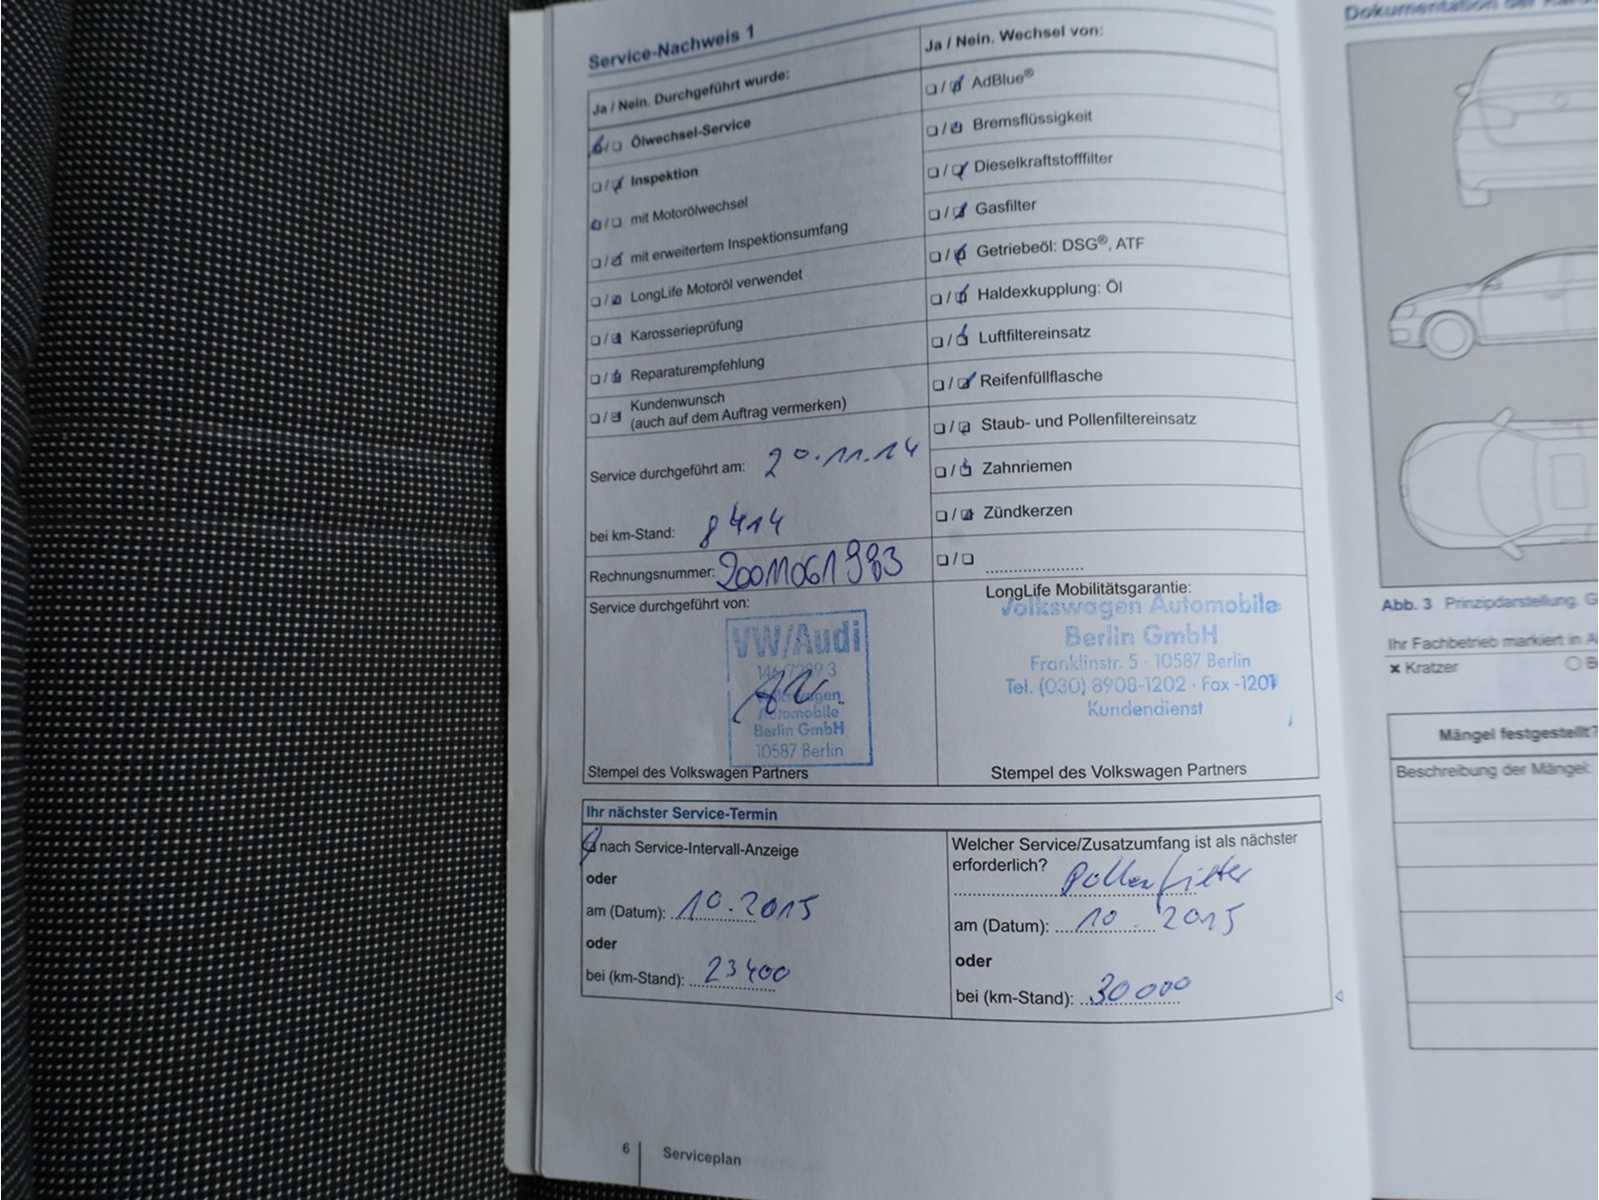 Service-Nachweis 1
Ja / Nein. Durchgeführt wurde:
Ölwechsel-Service
Inspektion
mit Motorölwechsel
mit erweitertem Inspektionsumfang
LongLife Motoröl verwendet
Karosserieprüfung
Reparaturempfehlung
Kundenwunsch
(auch auf dem Auftrag vermerken)
Service durchgeführt am: 20.11.14
bei km-Stand: 8414
Rechnungsnummer: 20011061983
Service durchgeführt von:
VW/Audi
Automobile
Berlin GmbH
10587 Berlin
Stempel des Volkswagen Partners
Ja / Nein. Wechsel von:
AdBlue®
Bremsflüssigkeit
Dieselkraftstofffilter
Gasfilter
Getriebeöl: DSG®, ATF
Haldexkupplung: Öl
Luftfiltereinsatz
Reifenfüllflasche
Staub- und Pollenfiltereinsatz
Zahnriemen
Zündkerzen
LongLife Mobilitätsgarantie:
Volkswagen Automobile
Berlin GmbH
Franklinstr. 5 · 10587 Berlin
Tel. (030) 8908-1202 · Fax -1201
Kundendienst
Stempel des Volkswagen Partners
Ihr nächster Service-Termin
nach Service-Intervall-Anzeige
oder
am (Datum): 10.2015
oder
bei (km-Stand): 23400
Welcher Service/Zusatzumfang ist als nächster
erforderlich?
Pollenfilter
am (Datum): 10 2015
oder
bei (km-Stand): 30000
6 Serviceplan
Dokumentation der
Abb. 3 Prinzipdarstellung.
Ihr Fachbetrieb markiert in
× Kratzer
Mängel festgestellt?
Beschreibung der Mängel: